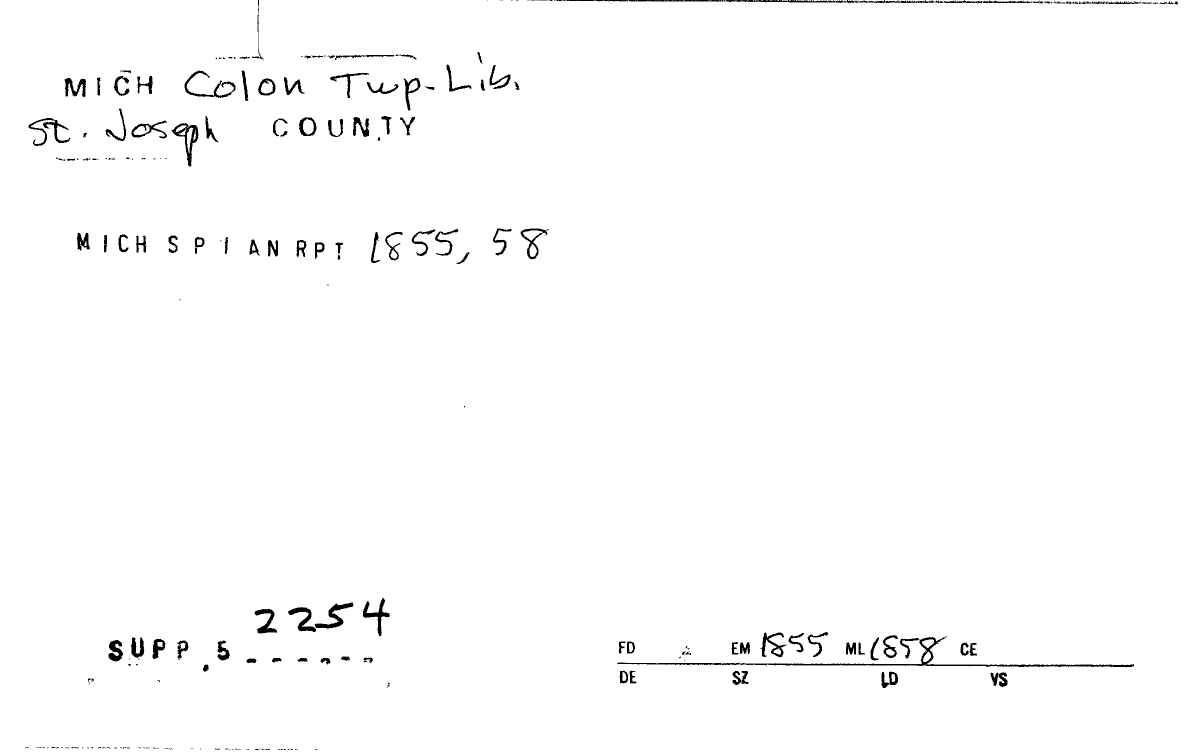 MICH Colon Twp. Lib.
St. Joseph COUNTY
MICH S P I AN RPT 1855, 58
2254
SUPP. 5
FD EM 1855 ML 1858 CE
DE SZ LD VS